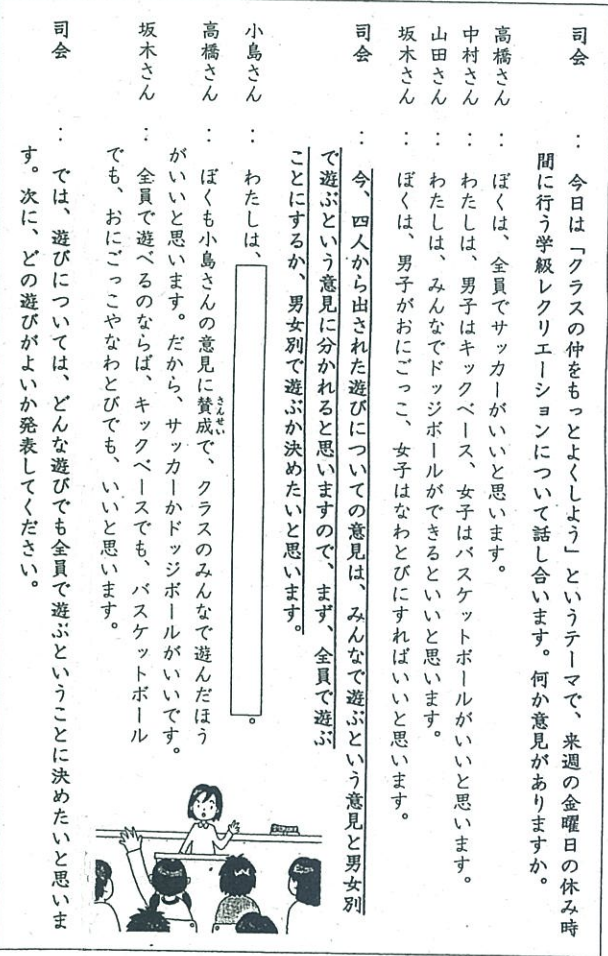 司会　：　今日は「クラスの仲をもっとよくしよう」というテーマで、来週の金曜日の休み時
間に行う学級レクリエーションについて話し合います。何か意見がありますか。
高橋さん　：　ぼくは、全員でサッカーがいいと思います。
中村さん　：　わたしは、男子はキックベース、女子はバスケットボールがいいと思います。
山田さん　：　わたしは、みんなでドッジボールができるといいと思います。
坂木さん　：　ぼくは、男子がおにごっこ、女子はなわとびにすればいいと思います。
司会　：　今、四人から出された遊びについての意見は、みんなで遊ぶという意見と男女別
で遊ぶという意見に分かれると思いますので、まず、全員で遊ぶ
ことにするか、男女別で遊ぶか決めたいと思います。
小島さん　：　わたしは、　。
高橋さん　：　ぼくも小島さんの意見に賛成で、クラスのみんなで遊んだほう
さんせい
がいいと思います。だから、サッカーかドッジボールがいいです。
坂木さん　：　全員で遊べるのならば、キックベースでも、バスケットボール
でも、おにごっこやなわとびでも、いいと思います。
司会　：　では、遊びについては、どんな遊びでも全員で遊ぶということに決めたいと思いま
す。次に、どの遊びがよいか発表してください。